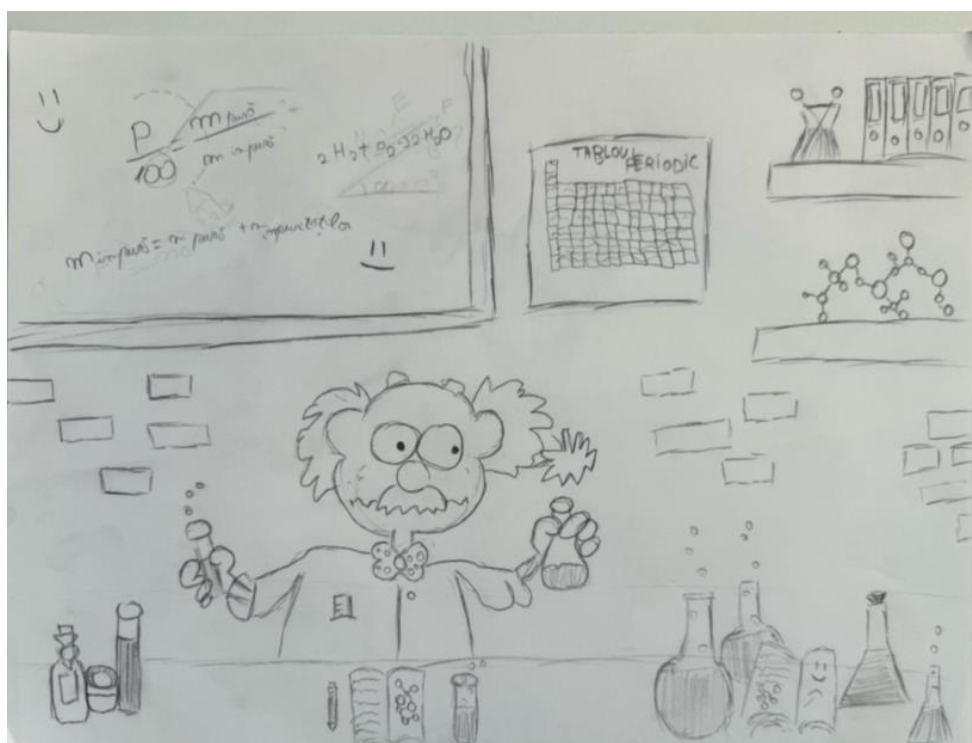 P/100 = m pură/m impură
2H₂ + O₂ → 2H₂O
m impură = m pură + m impurităților
TABLOUL PERIODIC